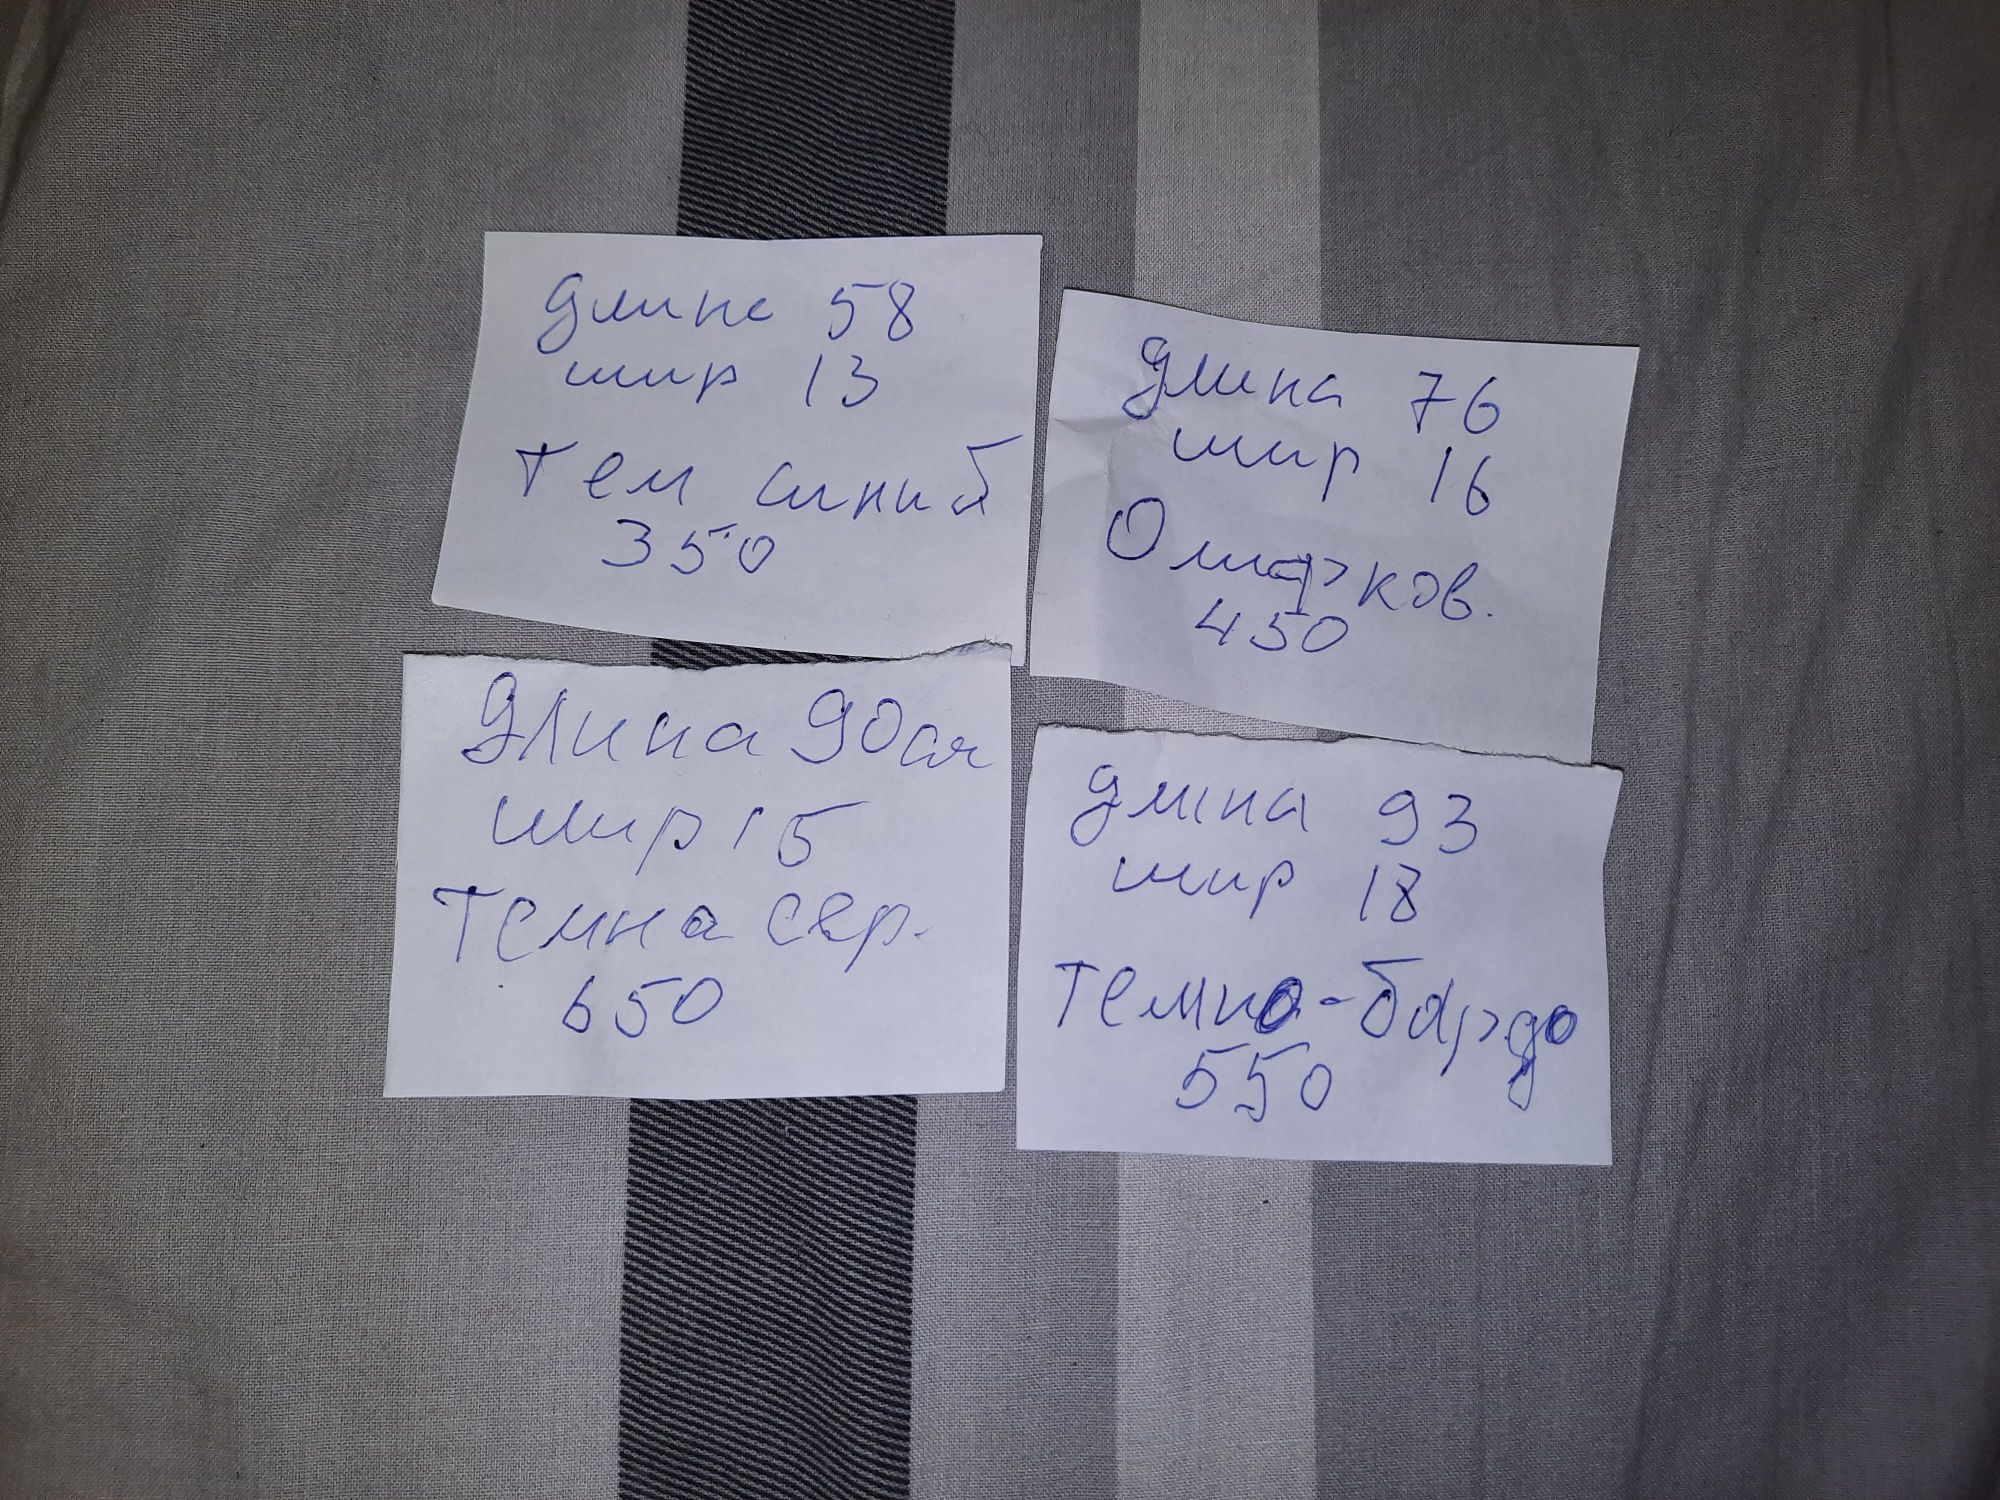 длина 58
шир 13
тем синий
350
длина 76
шир 16
450
длина 90см
шир 15
темна сер.
650
длина 93
шир 18
темно-бордо
550